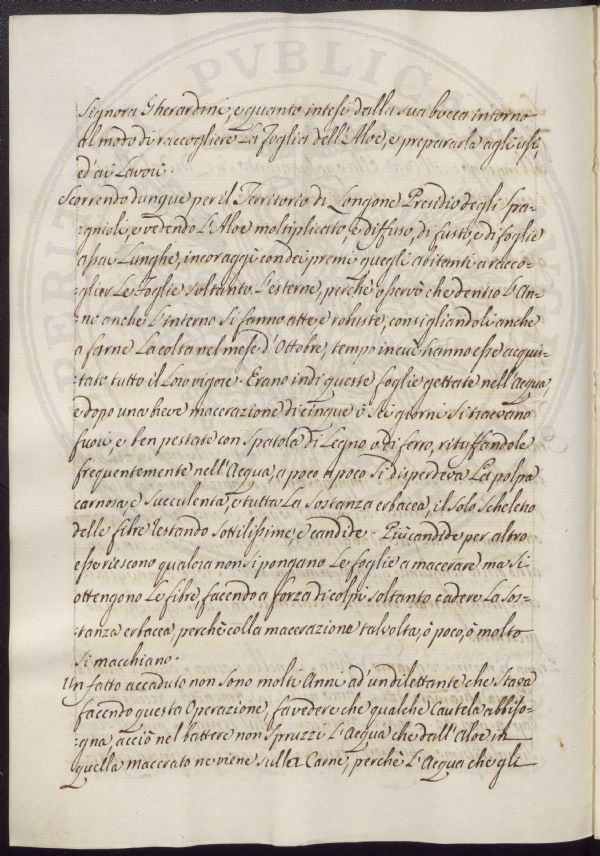 Signora Gherardini, e quanto intesi dalla sua bocca intorno
al modo di raccogliere La Foglia dell'Aloe, e prepararla agli usi,
ed'ai Lavori.
Scorrendo dunque per il Territorio di Longone Presidio degli Spa-
:gnioli, e vedendo L'Aloe moltiplicato, e diffuso, di fusto, e di foglie
assai Lunghe, incoraggì con dei premi quegli abitanti a racco-
:glier Le Foglie soltanto L'esterne, perchè osservò che dentro L'An-
:no anche L'interno si fanno atte e robuste, consigliandoli anche
a farne La colta nel mese d'Ottobre, tempo in cui hanno esse acquis-
:tato tutto il Loro vigore. Erano indi queste foglie gettate nell'Acqua,
e dopo una breve macerazione di cinque ò sei giorni si traevano
fuori, e ben pestate con Spatola di Legno o di ferro, rituffandole
frequentemente nell'Acqua, a poco a poco si disperdeva La polpa
carnosa, e succulenta, e tutta La sostanza erbacea, il solo Scheletro
delle fibre restando sottilissime, e candide. Più candide per altro
esse riescono qualora non si pongano Le foglie a macerare ma si
ottengono Le fibre, facendo a forza di colpi soltanto cadere La Sos-
:tanza erbacea, perchè colla macerazione talvolta, ò poco, ò molto
si macchiano.
Un fatto accaduto non sono molti Anni ad'un dilettante che stava
facendo questa Operazione, fa vedere che qualche Cautela abbiso-
:gna, acciò nel battere non spruzzi L'Acqua che dall'Aloe in
quella macerato ne viene sulla Carne, perchè L'Acqua che gli
PVBLIC